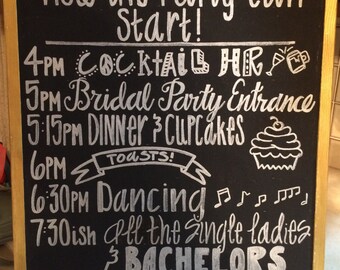 Now this Party Can
Start!
4PM COCKTAIL HR
5PM Bridal Party Entrance
5:15PM DINNER & CUPCAKES
6PM TOASTS!
6:30PM Dancing
7:30ish All the single ladies
& BACHELORS